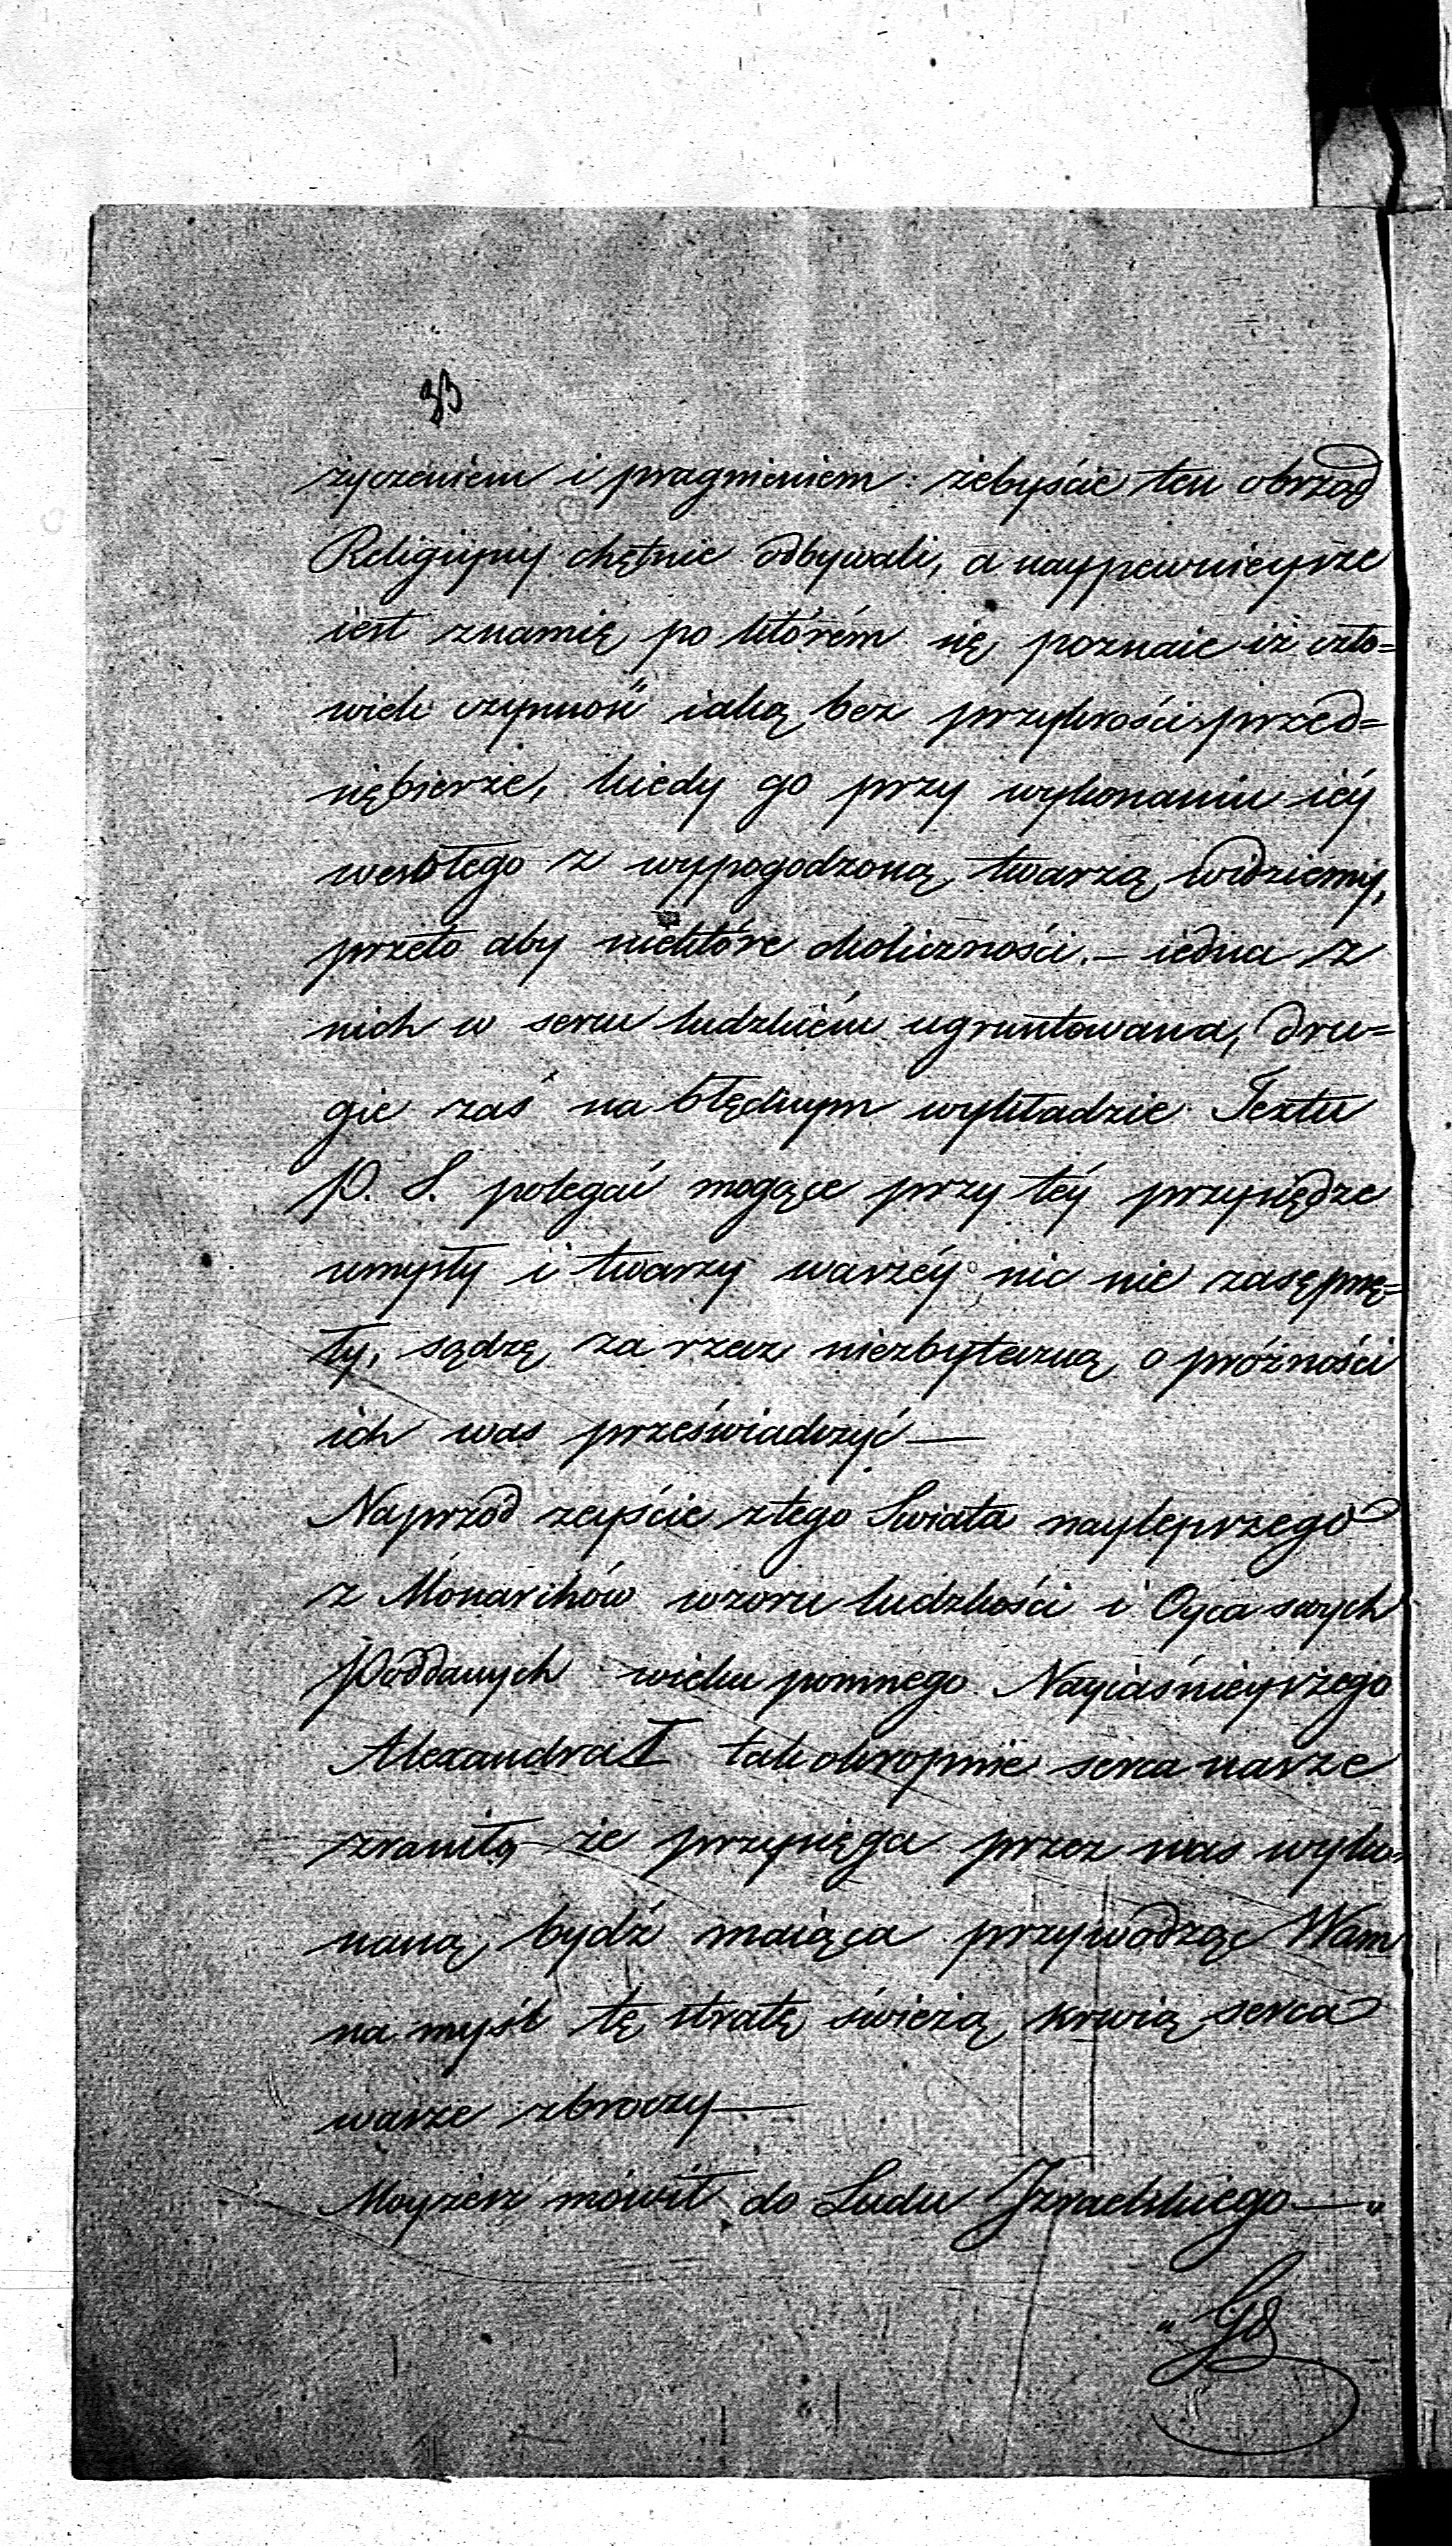 33
życzeniem i pragnieniem: żebyście ten obrząd
Religiyny chętnie odbywali, a naypewnieysze
iest znamię po którém się poznaie iż czło=
wiek czynność iaką bez przykrości przed=
siębierze, kiedy go przy wykonaniu iéy
wesołego z wypogodzoną twarzą widziemy,
przeto aby niektóre okoliczności. – iedna z
nich w sercu ludzkiém ugruntowana, dru=
gie zaś na błędnym wykładzie Textu
P. S. polegać mogące przy téy przysiędze
umysły i twarzy waszéy nic nie zasępię=
ły, sądzę za rzecz niezbyteczną o próżności
ich was przeświadczyć —
Naprzód zeyście z tego Swiata naylepszego
z Monarchów wzoru ludzkości i Oyca swych
Poddanych wieku pomnego Nayiaśnieyszego
Alexandra I tak okropnie serca nasze
zraniło że przysięga przez was wyko=
naną bydź maiąca przywodząc Wam
na myśl tę stratę świeżą krwią serca
wasze zbroczy —
Moyżesz mówił do Ludu Izraelskiego — „
„ Gd